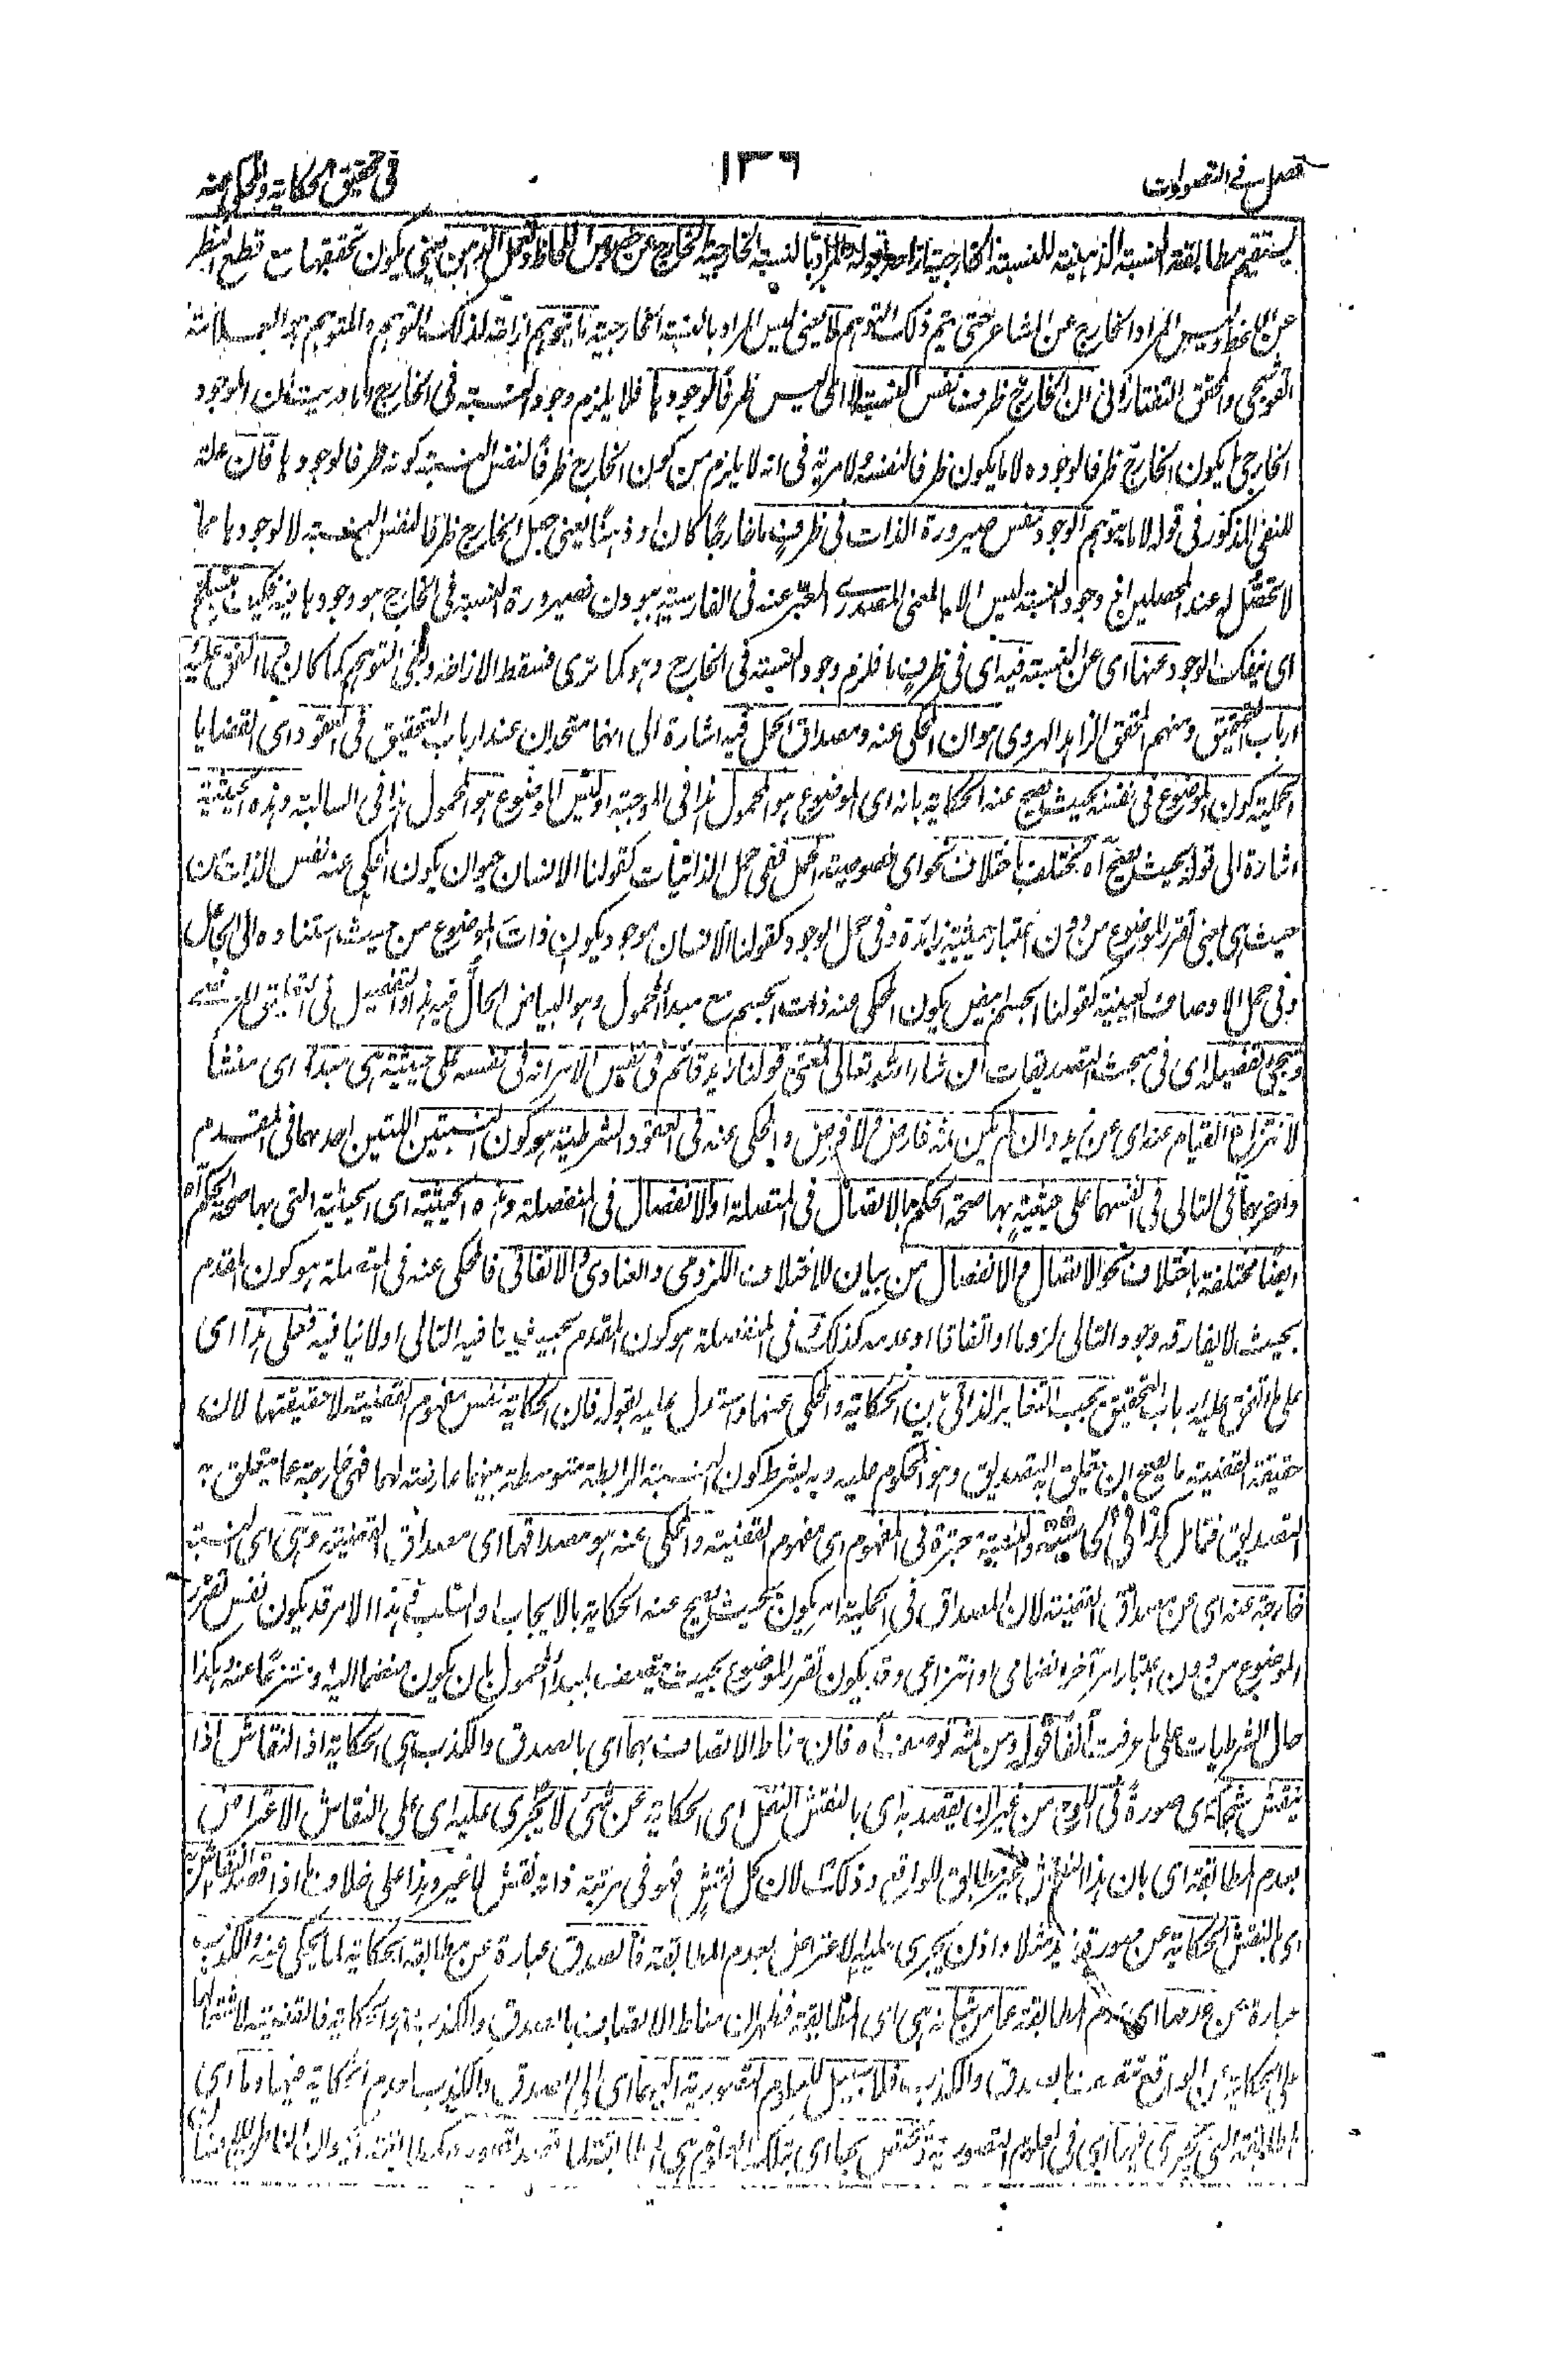 فصل في التصورات
١٣٩
في تحقيق الحكاية والمحكي عنه
يستقيم مطابقة النسبة الذهنية للنسبة الخارجية ازاحه بقوله والمراد بالنسبة الخارجية الخارج عن خصوص اللحاظ الذهن يعني يكون تحققها مع قطع النظر
عن اللحظ وليس المراد الخارج عن المشاعر حتى يتم ذلك التوهم لا يعني ليس المراد بالنسبة الخارجية ما يتوهم ازاحة لذلك التوهم والمتوهم
القوشجي والمحقق التفتازاني ان الخارج ظرف نفس النسبة لا اي ليس ظرفا لوجودها فلا يلزم وجود النسبة في الخارج لما دريت ان الموجود
الخارجي ما يكون الخارج ظرفا لوجوده لا ما يكون ظرفا لنفسه ولا مرية في انه لا يلزم من كون الخارج ظرفا لنفس النسبة كونه ظرفا لوجودها فان علة
للنفي المذكور في قوله لا ما يتوهم الوجود نفس صيرورة الذات في ظرف ما خارجيا كان او ذهنيا يعني جعل الخارج ظرفا لنفس النسبة لا لوجودها مما
لا تحصل له عند المحصلين اذ وجود النسبة ليس الا بالمعنى المصدري المعبر عنه في الفارسية ببودن فصيرورة النسبة في الخارج هو وجودها فيه فكيف
اي ينفك الوجود عنها اي عن النسبة فيه اي في ظرف ما فلزم وجود النسبة في الخارج وهو كما ترى فسقط الازاحة وبقي التوهم كما كان ثم ما اتفق عليه
ارباب التحقيق ومنهم المحقق الزاهد الهروي هو ان المحكي عنه ومصداق الحمل فيه اشارة الى انهما متحدان عند ارباب التحقيق في العقود اي القضايا
الحملية كون الموضوع في نفسه بحيث يصح عنه الحكاية بانه اي الموضوع هو المحمول هذا في الموجبة او ليس الموضوع هو المحمول هذا في السالبة وهذه الحيثية
اشارة الى قوله بحيث يصح آه تختلف باختلاف نحو اي خصوصية الحمل ففي حمل الذاتيات كقولنا الانسان حيوان يكون المحكي عنه نفس الذات من
حيث هي اعني تقرر الموضوع من دون اعتبار حيثية زائدة وفي حمل الوجود كقولنا الانسان موجود يكون ذات الموضوع من حيث استناده الى الجاعل
وفي حمل الاوصاف العينية كقولنا الجسم ابيض يكون المحكي عنه ذات الجسم مع مبدأ المحمول وهو البياض الحال فيه هذا والتفصيل في
ويجيء تفصيله اي في مبحث التصديقات ان شاء الله تعالى فمعنى قولنا زيد قائم في نفس الامر انه في نفسه على حيثية هي مبدء اي منشأ
لانتزاع القيام عنه اي عن زيد وان لم يكن ثمه فارض ولا فرض والمحكي عنه في العقود الشرطية هو كون النسبتين اللتين احدهما في المقدم
واخرهما في التالي في انفسهما على حيثية بها صحة الحكم بالاتصال في المتصلة او الانفصال في المنفصلة وهذه الحيثية اي الحيثية التي بها صحة الحكم آه
ايضا مختلفة باختلاف نحو الاتصال والانفصال من بيان للاختلاف اللزومي والعنادي والاتفاقي فالمحكي عنه في المتصلة هو كون المقدم
بحيث لا يفارقه وجود التالي لزوما او اتفاقا او عدمه كذلك وفي المنفصلة هو كون المقدم بحيث ينافيه التالي اولا ينافيه فعلى هذا اي
على ما اتفق عليه ارباب التحقيق يجب التغاير الذاتي بين الحكاية والمحكي عنها واستدل عليه بقوله فان الحكاية نفس مفهوم القضية لا حقيقتها لان
حقيقة القضية ما يصح ان يتعلق به التصديق وهو المحكوم عليه وبه بشرط كون النسبة الرابطة متوسطة بينهما عارضة لهما فهي خارجة عما يتعلق به
التصديق فتأمل كذا في الحاشية والنسبة معتبرة في المفهوم اي مفهوم القضية والمحكي عنه هو مصداقها اي مصداق القضية وهي اي النسبة
خارجة عنه اي من مصداق القضية لان المصداق في الحملية امر يكون بحيث يصح عنه الحكاية بالايجاب او السلب فهذا الامر قد يكون نفس تقرر
الموضوع من دون اعتبار امر آخر انضمامي او انتزاعي وقد يكون تقرر الموضوع بحيث يتصف بمبدأ المحمول بان يكون منضما اليه او منتزعا عنه وهكذا
حال الشرطيات على ما عرفت آنفا قوله ومن ثمه توصف آه فان مناط الاتصاف بهما اي بالصدق والكذب هي الحكاية اذ النقاش اذا
ينقش شبحا اي صورة في اللوح من غير ان يقصد به اي بالنقش النقل اي الحكاية عن شيء لا يجري عليه اي على النقاش الاعتراض
بعدم المطابقة اي بان هذا النقش غير مطابق للواقع وذلك لان كل نقش فهو في مرتبة ذاته نقش لا غير وهذا على خلاف ما اذا قصد النقاش به
اي بالنقش الحكاية عن صورة زيد مثلا واذن يجري عليه الاعتراض بعدم المطابقة فالصدق عبارة عن مطابقة الحكاية لما يحكى عنه والكذب
عبارة عن عدمها اي عدم المطابقة عما من شأنه هي اي المطابقة فظهر ان مناط الاتصاف بالصدق والكذب هو الحكاية فالقضية لاشتمالها
على الحكاية عن الواقع تتصف بالصدق والكذب فلا سبيل للعلوم التصورية اليهما اي الى الصدق والكذب لعدم الحكاية فيها وما اي
المطابقة التي تجري فيها اي في العلوم التصورية وتختص بها اي بتلك العلوم هي المطابقة لما قصد تصوره